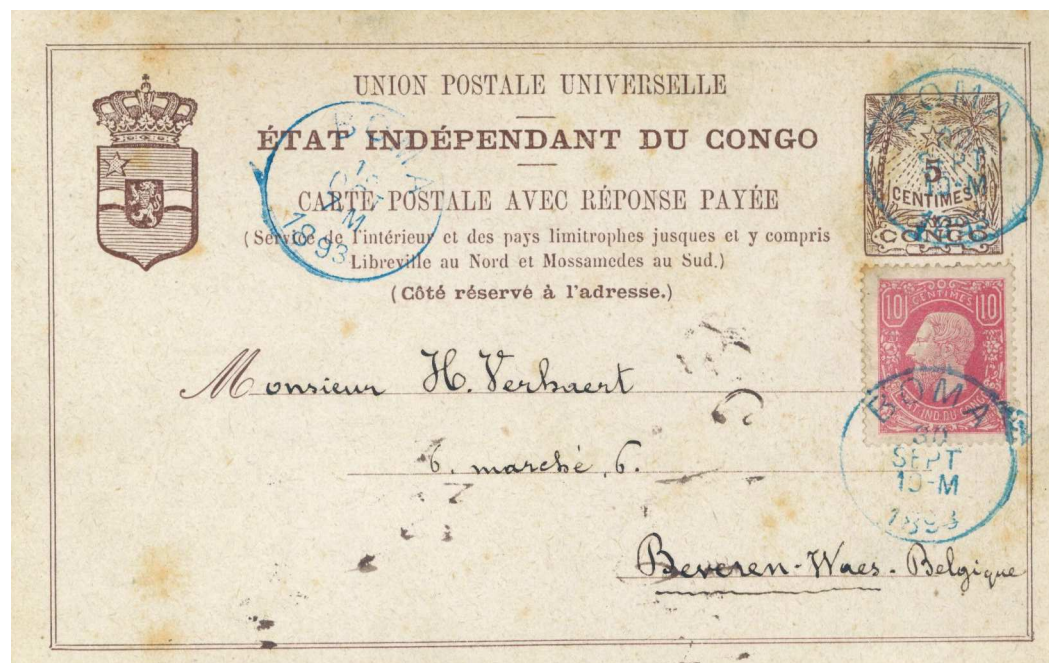 UNION POSTALE UNIVERSELLE
ÉTAT INDÉPENDANT DU CONGO
CARTE POSTALE AVEC RÉPONSE PAYÉE
(Service de l'intérieur et des pays limitrophes jusques et y compris
Libreville au Nord et Mossamedes au Sud.)
(Côté réservé à l'adresse.)
BOMA
1893
5
CENTIMES
CONGO
BOMA
SEPT
10-M
10 CENTIMES 10
ET. IND. DU CONGO
BOMA
30
SEPT
10-M
1893
Monsieur H. Verhaert
6. marché, 6.
Beveren-Waes. Belgique